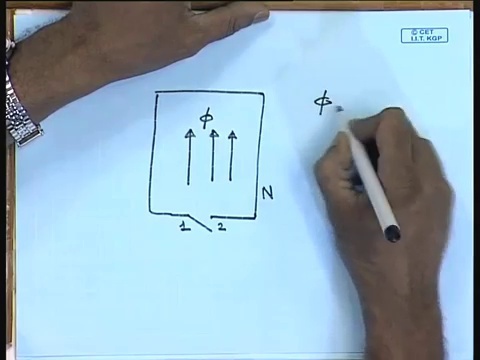 © CET
I.I.T. KGP
φ
φ =
N
1 2